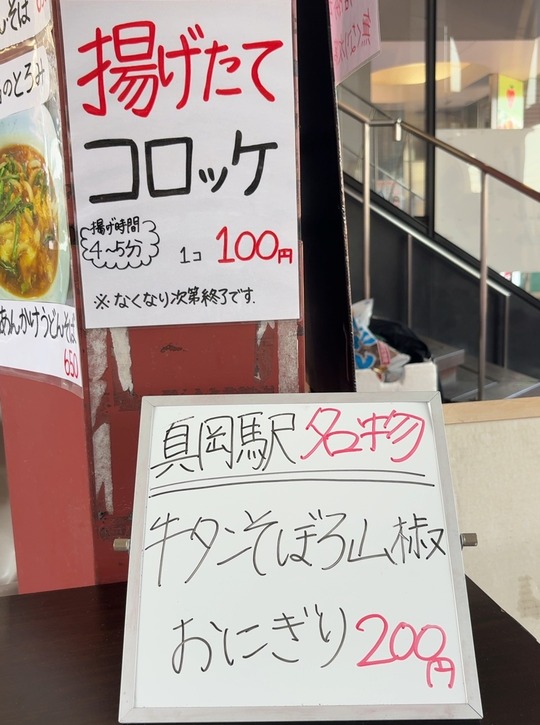 揚げたて
コロッケ
揚げ時間
4~5分
1コ 100円
※なくなり次第終了です.
んそば
のとろみ
あんかけうどんそば
650
真岡駅 名物
牛タンそぼろ山椒
おにぎり 200円